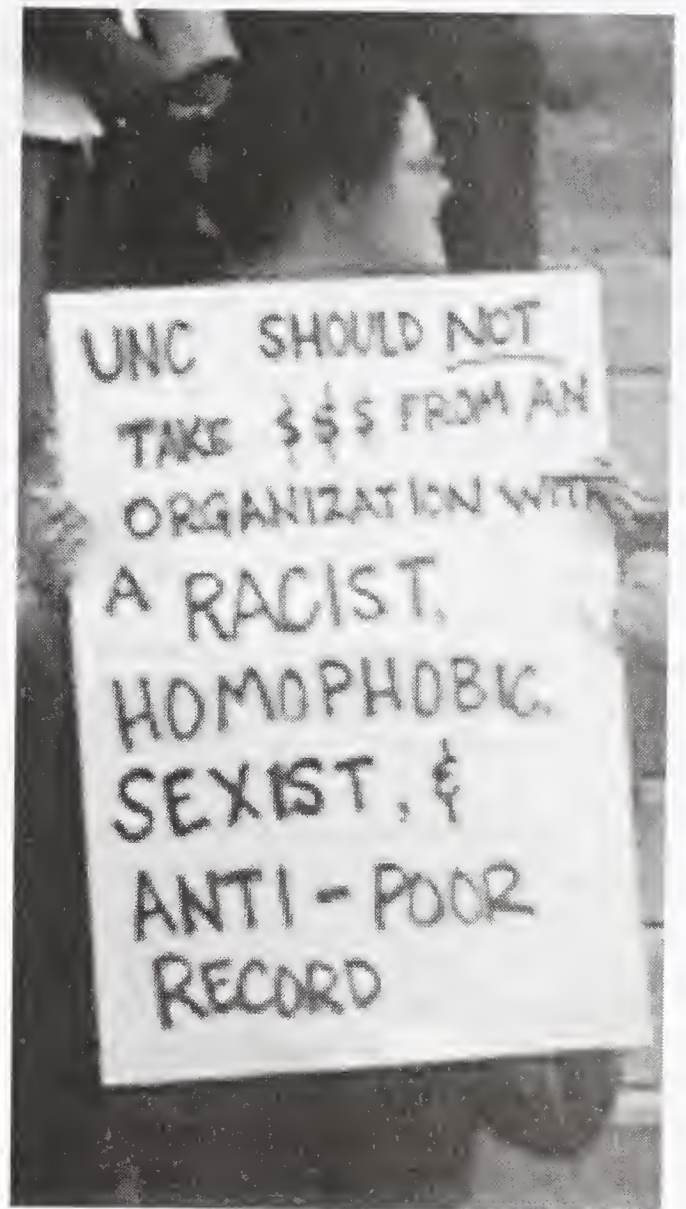 UNC SHOULD NOT
TAKE $$$ FROM AN
ORGANIZATION WITH
A RACIST,
HOMOPHOBIC,
SEXIST, &
ANTI-POOR
RECORD